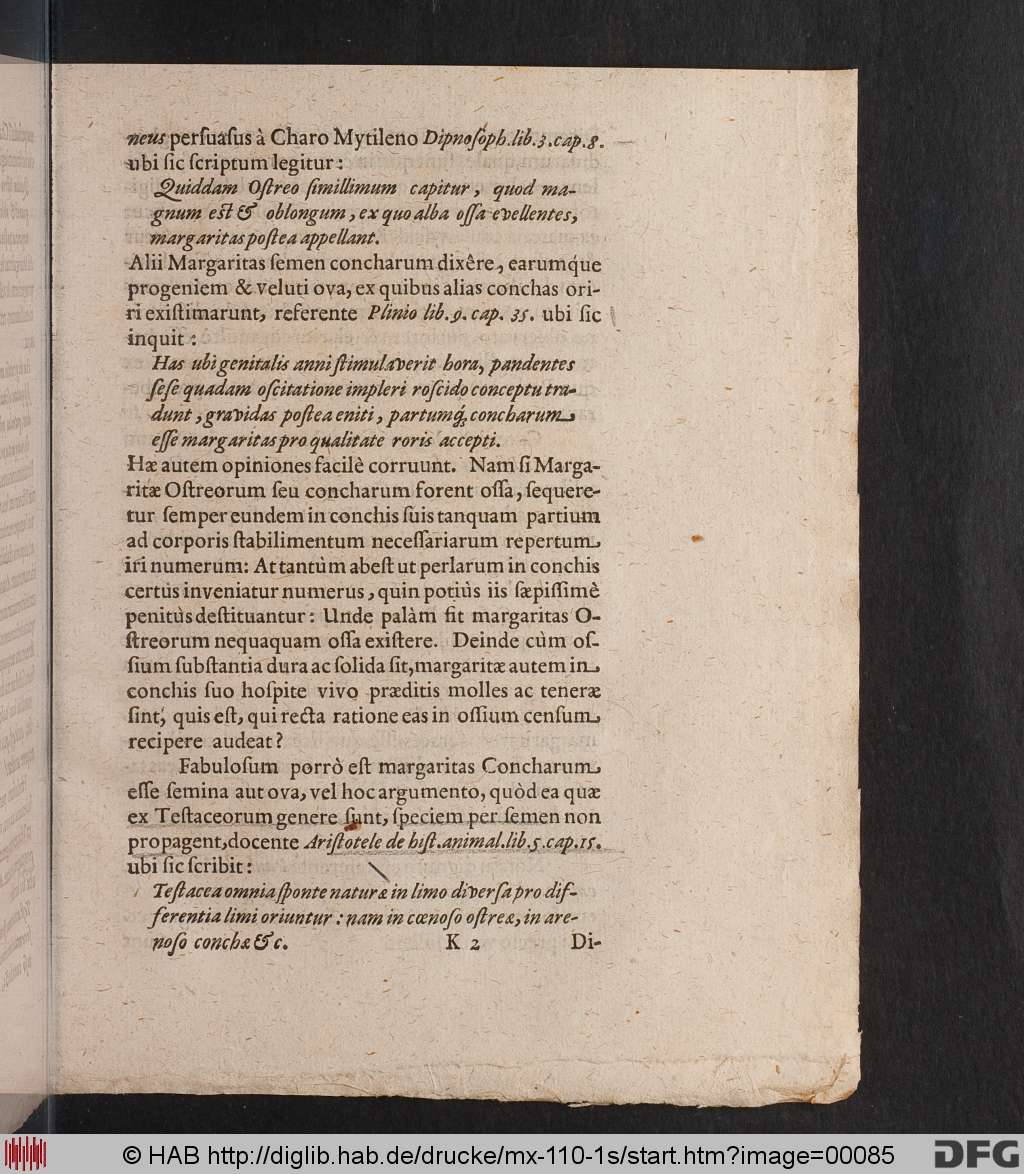 neus persuasus à Charo Mytileno Dipnosoph. lib. 3. cap. 8.
ubi sic scriptum legitur:
Quiddam Ostreo simillimum capitur, quod ma-
gnum est & oblongum, ex quo alba ossa evellentes,
margaritas postea appellant.
Alii Margaritas semen concharum dixêre, earumq́ue
progeniem & veluti ova, ex quibus alias conchas ori-
ri existimarunt, referente Plinio lib. 9. cap. 35. ubi sic
inquit:
Has ubi genitalis anni stimulaverit hora, pandentes
sese quadam oscitatione impleri roscido conceptu tra-
dunt, gravidas postea eniti, partumq́; concharum
esse margaritas pro qualitate roris accepti.
Hæ autem opiniones facilè corruunt. Nam si Marga-
ritæ Ostreorum seu concharum forent ossa, sequere-
tur semper eundem in conchis suis tanquam partium
ad corporis stabilimentum necessariarum repertum
iri numerum: At tantùm abest ut perlarum in conchis
certus inveniatur numerus, quin potiùs iis sæpissimè
penitùs destituantur: Unde palàm fit margaritas O-
streorum nequaquam ossa existere. Deinde cùm os-
sium substantia dura ac solida sit, margaritæ autem in
conchis suo hospite vivo præditis molles ac teneræ
sint, quis est, qui recta ratione eas in ossium censum
recipere audeat?
Fabulosum porrò est margaritas Concharum
esse semina aut ova, vel hoc argumento, quòd ea quæ
ex Testaceorum genere sunt, speciem per semen non
propagent, docente Aristotele de hist. animal. lib. 5. cap. 15.
ubi sic scribit:
Testacea omnia sponte naturæ in limo diversa pro dif-
ferentia limi oriuntur: nam in cœnoso ostreæ, in are-
noso conchæ &c. K 2 Di-
© HAB http://diglib.hab.de/drucke/mx-110-1s/start.htm?image=00085
DFG